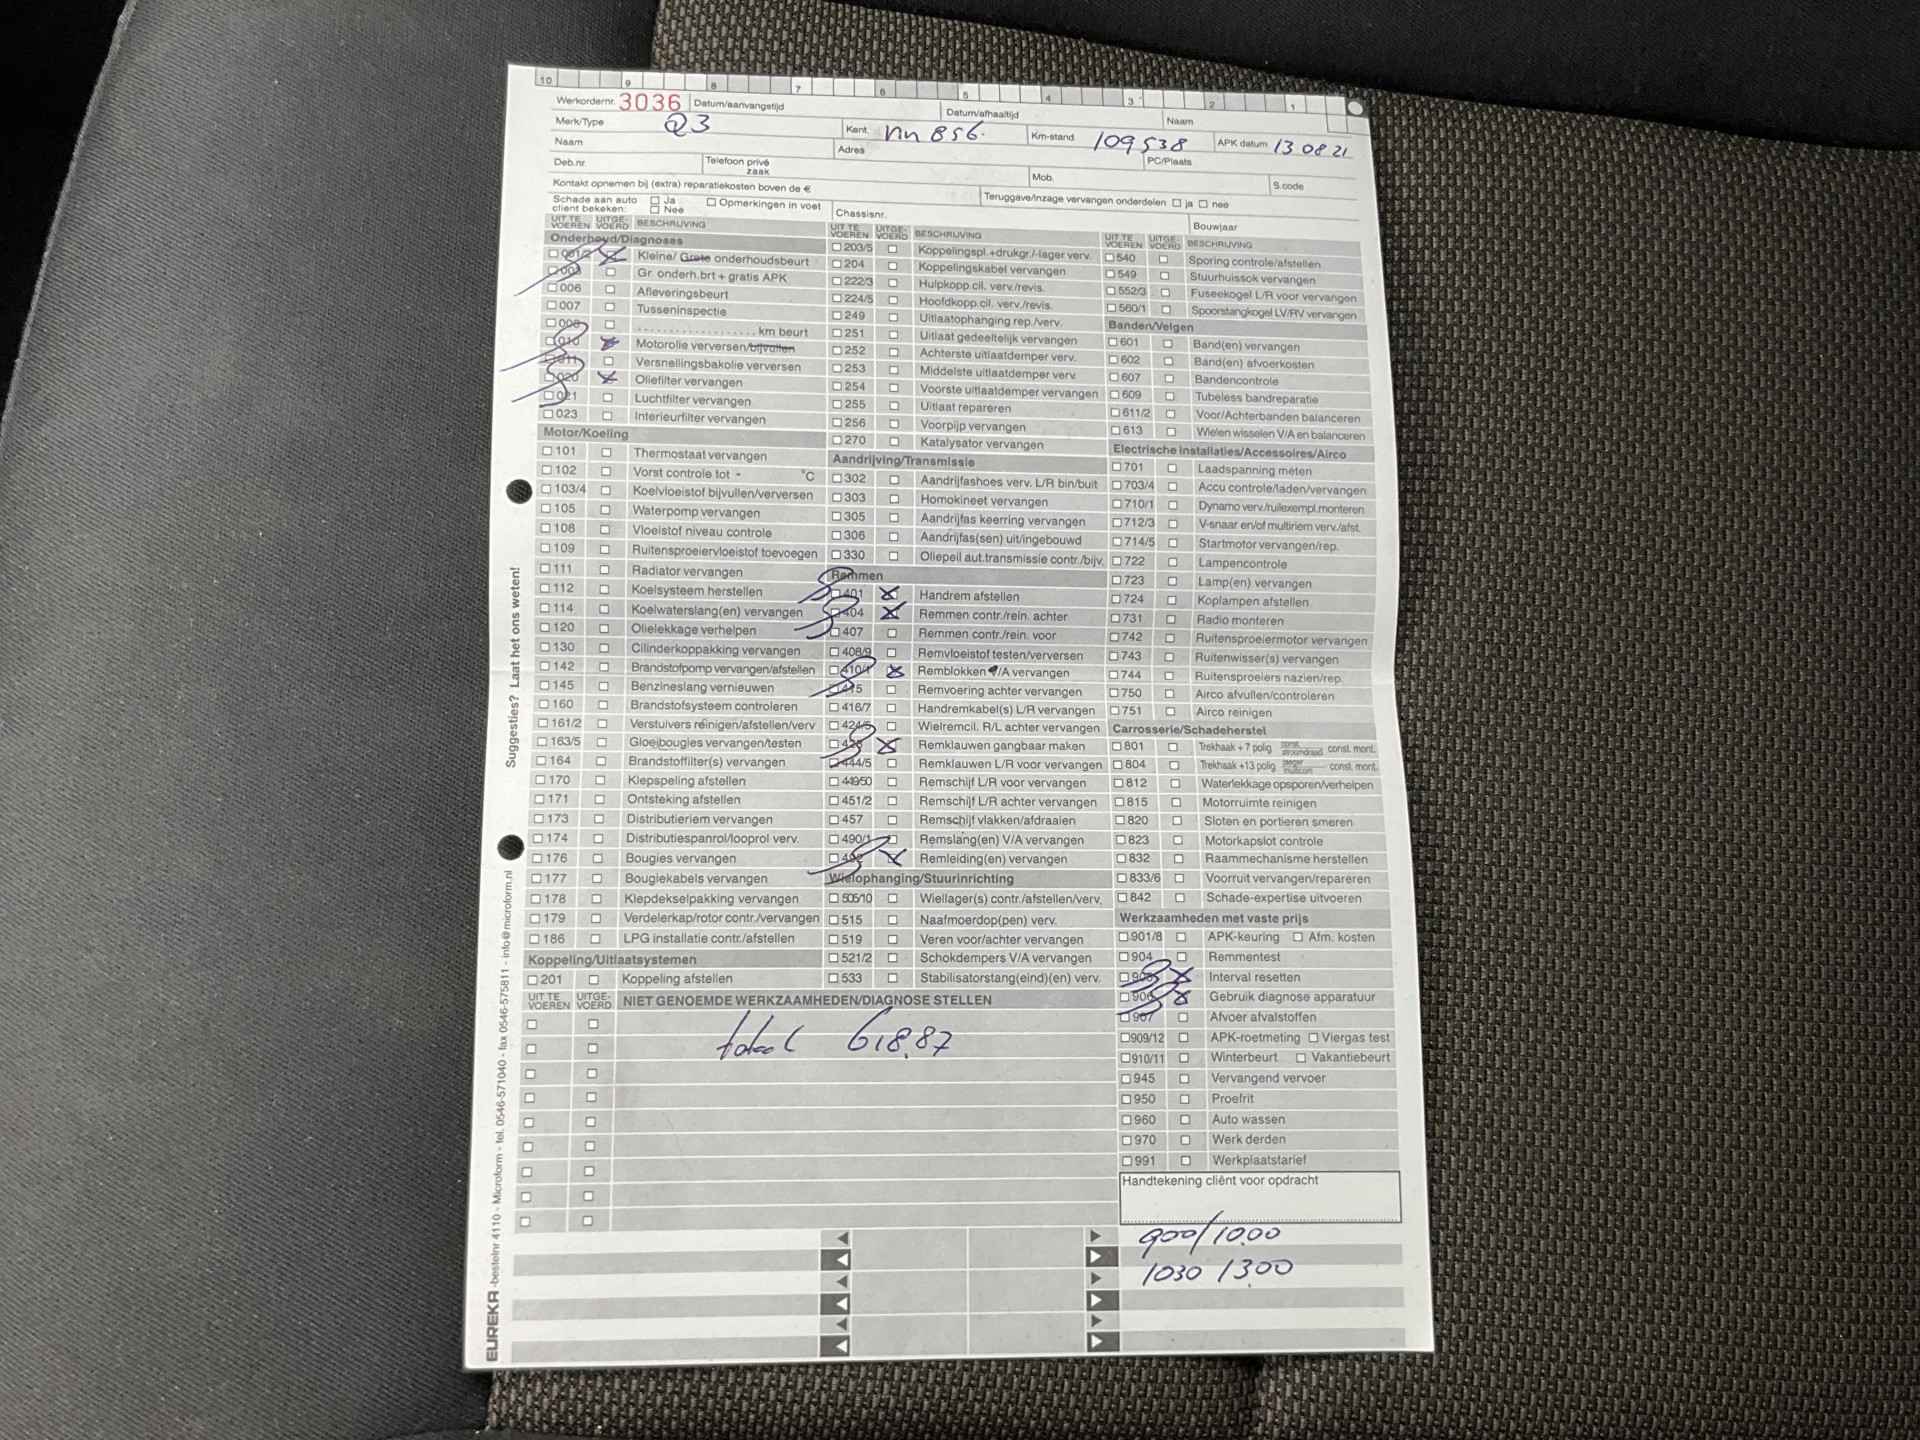 10 9 8 7 6 5 4 3 2 1
Werkordernr. 3036 Datum/aanvangstijd Datum/afhaaltijd Naam
Merk/Type Q3 Kent. nn 856. Km-stand 109538 APK datum 13 08 21
Naam Adres PC/Plaats
Deb.nr. Telefoon privé zaak Mob. S.code
Kontakt opnemen bij (extra) reparatiekosten boven de € Teruggave/inzage vervangen onderdelen ja nee
Schade aan auto cliënt bekeken: Ja Nee Opmerkingen in voet Chassisnr. Bouwjaar
UIT TE VOEREN UITGE-VOERD BESCHRIJVING
Onderhoud/Diagnoses
001/2 Kleine/ Grote onderhoudsbeurt
003 Gr. onderh.brt + gratis APK
006 Afleveringsbeurt
007 Tusseninspectie
008 .................. km beurt
010 Motorolie verversen/bijvullen
011 Versnellingsbakolie verversen
020 Oliefilter vervangen
021 Luchtfilter vervangen
023 Interieurfilter vervangen
Motor/Koeling
101 Thermostaat vervangen
102 Vorst controle tot - °C
103/4 Koelvloeistof bijvullen/verversen
105 Waterpomp vervangen
108 Vloeistof niveau controle
109 Ruitensproeiervloeistof toevoegen
111 Radiator vervangen
112 Koelsysteem herstellen
114 Koelwaterslang(en) vervangen
120 Olielekkage verhelpen
130 Cilinderkoppakking vervangen
142 Brandstofpomp vervangen/afstellen
145 Benzineslang vernieuwen
160 Brandstofsysteem controleren
161/2 Verstuivers reinigen/afstellen/verv
163/5 Gloeibougies vervangen/testen
164 Brandstoffilter(s) vervangen
170 Klepspeling afstellen
171 Ontsteking afstellen
173 Distributieriem vervangen
174 Distributiespanrol/looprol verv.
176 Bougies vervangen
177 Bougiekabels vervangen
178 Klepdekselpakking vervangen
179 Verdelerkap/rotor contr./vervangen
186 LPG installatie contr./afstellen
Koppeling/Uitlaatsystemen
201 Koppeling afstellen
UIT TE VOEREN UITGE-VOERD BESCHRIJVING
203/5 Koppelingspl.+drukgr./-lager verv.
204 Koppelingskabel vervangen
222/3 Hulpkopp.cil. verv./revis.
224/5 Hoofdkopp.cil. verv./revis.
249 Uitlaatophanging rep./verv.
251 Uitlaat gedeeltelijk vervangen
252 Achterste uitlaatdemper verv.
253 Middelste uitlaatdemper verv.
254 Voorste uitlaatdemper vervangen
255 Uitlaat repareren
256 Voorpijp vervangen
270 Katalysator vervangen
Aandrijving/Transmissie
302 Aandrijfashoes verv. L/R bin/buit
303 Homokineet vervangen
305 Aandrijfas keerring vervangen
306 Aandrijfas(sen) uit/ingebouwd
330 Oliepeil aut.transmissie contr./bijv.
Remmen
401 Handrem afstellen
404 Remmen contr./rein. achter
407 Remmen contr./rein. voor
408/9 Remvloeistof testen/verversen
410/1 Remblokken /A vervangen
415 Remvoering achter vervangen
416/7 Handremkabel(s) L/R vervangen
424/5 Wielremcil. R/L achter vervangen
Remklauwen gangbaar maken
444/5 Remklauwen L/R voor vervangen
449/50 Remschijf L/R voor vervangen
451/2 Remschijf L/R achter vervangen
457 Remschijf vlakken/afdraaien
490/1 Remslang(en) V/A vervangen
Remleiding(en) vervangen
Wielophanging/Stuurinrichting
505/10 Wiellager(s) contr./afstellen/verv.
515 Naafmoerdop(pen) verv.
519 Veren voor/achter vervangen
521/2 Schokdempers V/A vervangen
533 Stabilisatorstang(eind)(en) verv.
UIT TE VOEREN UITGE-VOERD BESCHRIJVING
540 Sporing controle/afstellen
549 Stuurhuissok vervangen
552/3 Fuseekogel L/R voor vervangen
560/1 Spoorstangkogel LV/RV vervangen
Banden/Velgen
601 Band(en) vervangen
602 Band(en) afvoerkosten
607 Bandencontrole
609 Tubeless bandreparatie
611/2 Voor/Achterbanden balanceren
613 Wielen wisselen V/A en balanceren
Electrische installaties/Accessoires/Airco
701 Laadspanning meten
703/4 Accu controle/laden/vervangen
710/1 Dynamo verv./ruilexempl.monteren
712/3 V-snaar en/of multiriem verv./afst.
714/5 Startmotor vervangen/rep.
722 Lampencontrole
723 Lamp(en) vervangen
724 Koplampen afstellen
731 Radio monteren
742 Ruitensproeiermotor vervangen
743 Ruitenwisser(s) vervangen
744 Ruitensproeiers nazien/rep.
750 Airco afvullen/controleren
751 Airco reinigen
Carrosserie/Schadeherstel
801 Trekhaak + 7 polig const. mont.
804 Trekhaak +13 polig const. mont.
812 Waterlekkage opsporen/verhelpen
815 Motorruimte reinigen
820 Sloten en portieren smeren
823 Motorkapslot controle
832 Raammechanisme herstellen
833/6 Voorruit vervangen/repareren
842 Schade-expertise uitvoeren
Werkzaamheden met vaste prijs
901/8 APK-keuring Afm. kosten
904 Remmentest
Interval resetten
906 Gebruik diagnose apparatuur
907 Afvoer afvalstoffen
909/12 APK-roetmeting Viergas test
910/11 Winterbeurt Vakantiebeurt
945 Vervangend vervoer
950 Proefrit
960 Auto wassen
970 Werk derden
991 Werkplaatstarief
Handtekening cliënt voor opdracht
UIT TE VOEREN UITGE-VOERD NIET GENOEMDE WERKZAAMHEDEN/DIAGNOSE STELLEN
totaal 618.87
900/10.00
1030 13.00
Suggesties? Laat het ons weten!
EUREKA -bestelnr 4110 - Microform - tel. 0546-571040 - fax 0546-575811 - info@microform.nl